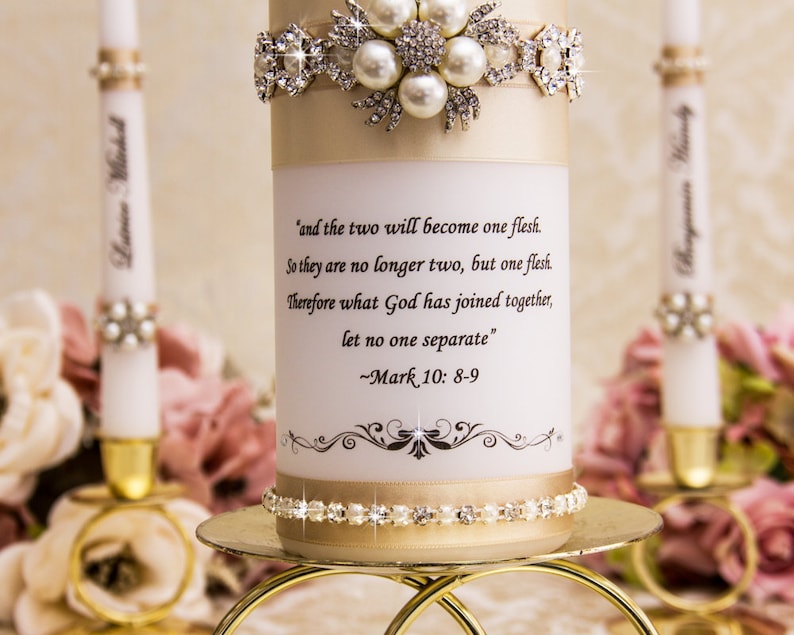 “and the two will become one flesh.
So they are no longer two, but one flesh.
Therefore what God has joined together,
let no one separate”
~Mark 10: 8-9